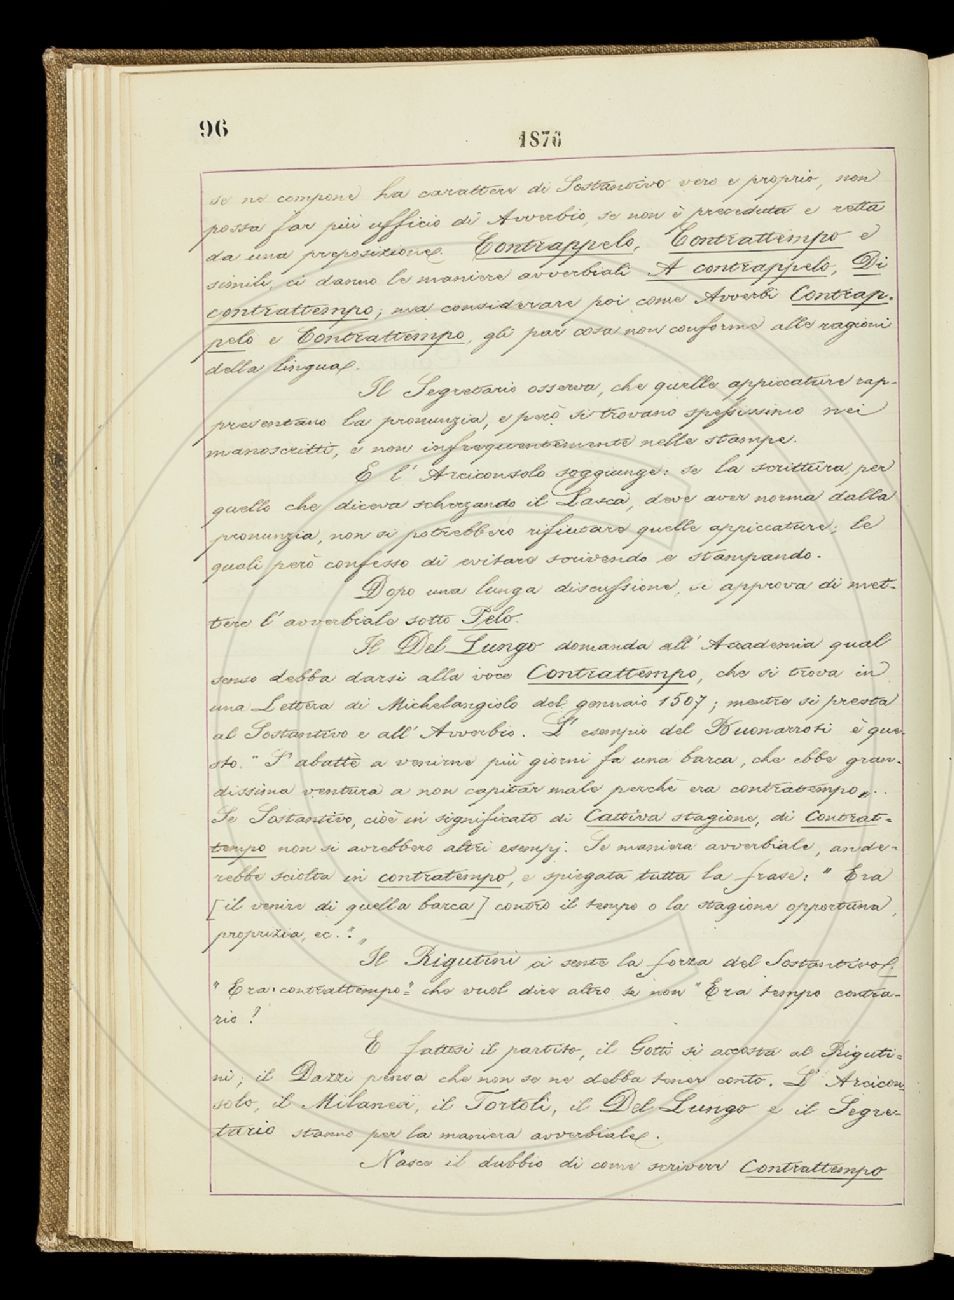 96
1876
se ne compone ha carattere di Sostantivo vero e proprio, non
possa far più ufficio di Avverbio, se non è preceduta e retta
da una preposizione. Contrappelo, Contrattempo e
simili, ci danno le maniere avverbiali A contrappelo, Di
contrattempo; ma considerare poi come Avverbi Contrap-
pelo e Contrattempo, gli par cosa non conforme alle ragioni
della lingua.
Il Segretario osserva, che quelle appiccature rap-
presentano la pronunzia, e però si trovano spessissimo nei
manoscritti, e non infrequentemente nelle stampe.
E l' Arciconsolo soggiunge: se la scrittura, per
quello che diceva scherzando il Lasca, deve aver norma dalla
pronunzia, non si potrebbero rifiutare quelle appiccature; le
quali però confesso di evitare scrivendo e stampando.
Dopo una lunga discussione, si approva di met-
tere l' avverbiale sotto Pelo.
Il Del Lungo domanda all' Accademia qual
senso debba darsi alla voce Contrattempo, che si trova in
una Lettera di Michelangiolo del gennaio 1507; mentre si presta
al Sostantivo e all' Avverbio. L' esempio del Buonarroti è que-
sto. " S' abattè a venirne più giorni fa una barca, che ebbe gran-
dissima ventura a non capitar male perchè era contratempo „.
Se Sostantivo, cioè in significato di Cattiva stagione, di Contrat-
tempo non si avrebbero altri esempj. Se maniera avverbiale, ande-
rebbe sciolta in contratempo, e spiegata tutta la frase: " Era
[il venire di quella barca] contro il tempo o la stagione opportuna,
propizia, ec. „
Il Rigutini ci sente la forza del Sostantivo.
" Era contrattempo " che vuol dire altro se non " Era tempo contra-
rio !
E fattosi il partito, il Gotti si accosta al Riguti-
ni; il Dazzi pensa che non se ne debba tener conto. L' Arcicon-
solo, il Milanesi, il Tortoli, il Del Lungo e il Segre-
tario stanno per la maniera avverbiale.
Nasce il dubbio di come scrivere Contrattempo